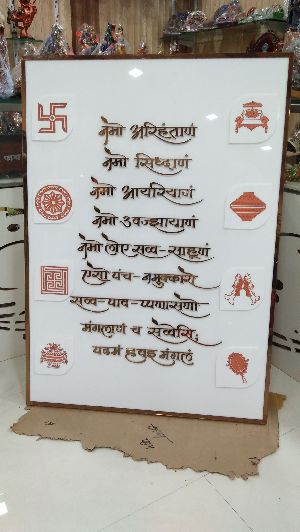 नमो अरिहंताणं
नमो सिध्दाणं
नमो आयरियाणं
नमो उवज्झायाणं
नमो लोए सव्व-साहूणं
एसो पंच-नमुक्कारो
सव्व-पाव-प्पणासणो
मंगलाणं च सव्वेसिं,
पढमं हवइ मंगलं